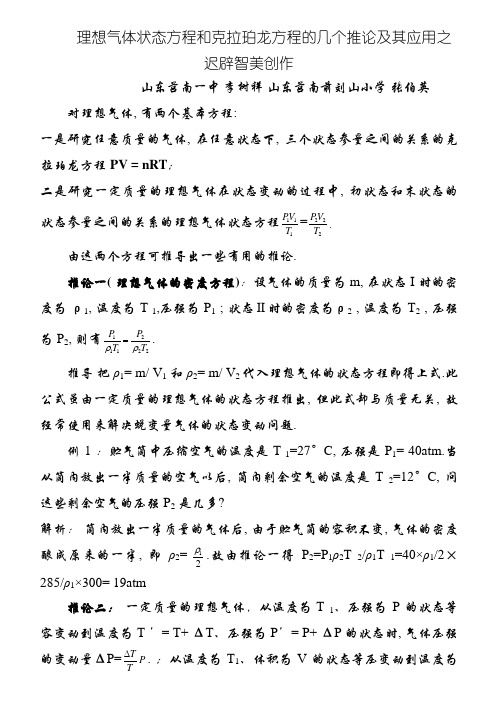 理想气体状态方程和克拉珀龙方程的几个推论及其应用之
迟辟智美创作
山东莒南一中 李树祥 山东莒南前刘山小学 张伯英
对理想气体, 有两个基本方程:
一是研究任意质量的气体, 在任意状态下, 三个状态参量之间的关系的克
拉珀龙方程 PV = nRT;
二是研究一定质量的理想气体在状态变动的过程中, 初状态和末状态的
状态参量之间的关系的理想气体状态方程P₁V₁/T₁=P₂V₂/T₂.
由这两个方程可推导出一些有用的论.
推论一( 理想气体的密度方程): 设气体的质量为 m, 在状态Ⅰ时的密
度为 ρ1, 温度为 T 1,压强为 P1 ; 状态Ⅱ时的密度为ρ2 , 温度为 T2 , 压强
为 P2, 则有P₁/ρ₁T₁=P₂/ρ₂T₂.
推导 把 ρ1= m/ V1 和 ρ2= m/ V2 代入理想气体的状态方程即得上式.此
公式虽由一定质量的理想气体的状态方程推出, 但此式却与质量无关, 故
经常使用来解决蜕变量气体的状态变动问题.
例 1 : 贮气筒中压缩空气的温度是 T 1=27°C, 压强是 P1= 40atm.当
从筒内放出一半质量的空气以后, 筒内剩余空气的温度是 T 2=12°C, 问
这些剩余空气的压强 P2 是几多?
解析: 筒内放出一半质量的气体后, 由于贮气筒的容积不变, 气体的密度
酿成原来的一半, 即 ρ2= ρ₁/2 .故由推论一得 P2=P1ρ2T 2/ρ1T 1=40×ρ1/2×
285/ρ1×300= 19atm
推论二: 一定质量的理想气体, 从温度为 T 1、压强为 P 的状态等
容变动到温度为 T ′= T+ ΔT、压强为 P′= P+ ΔP 的状态时, 气体压强
的变动量ΔP=ΔT/T P. ; 从温度为 T1、体积为 V 的状态等压变动到温度为